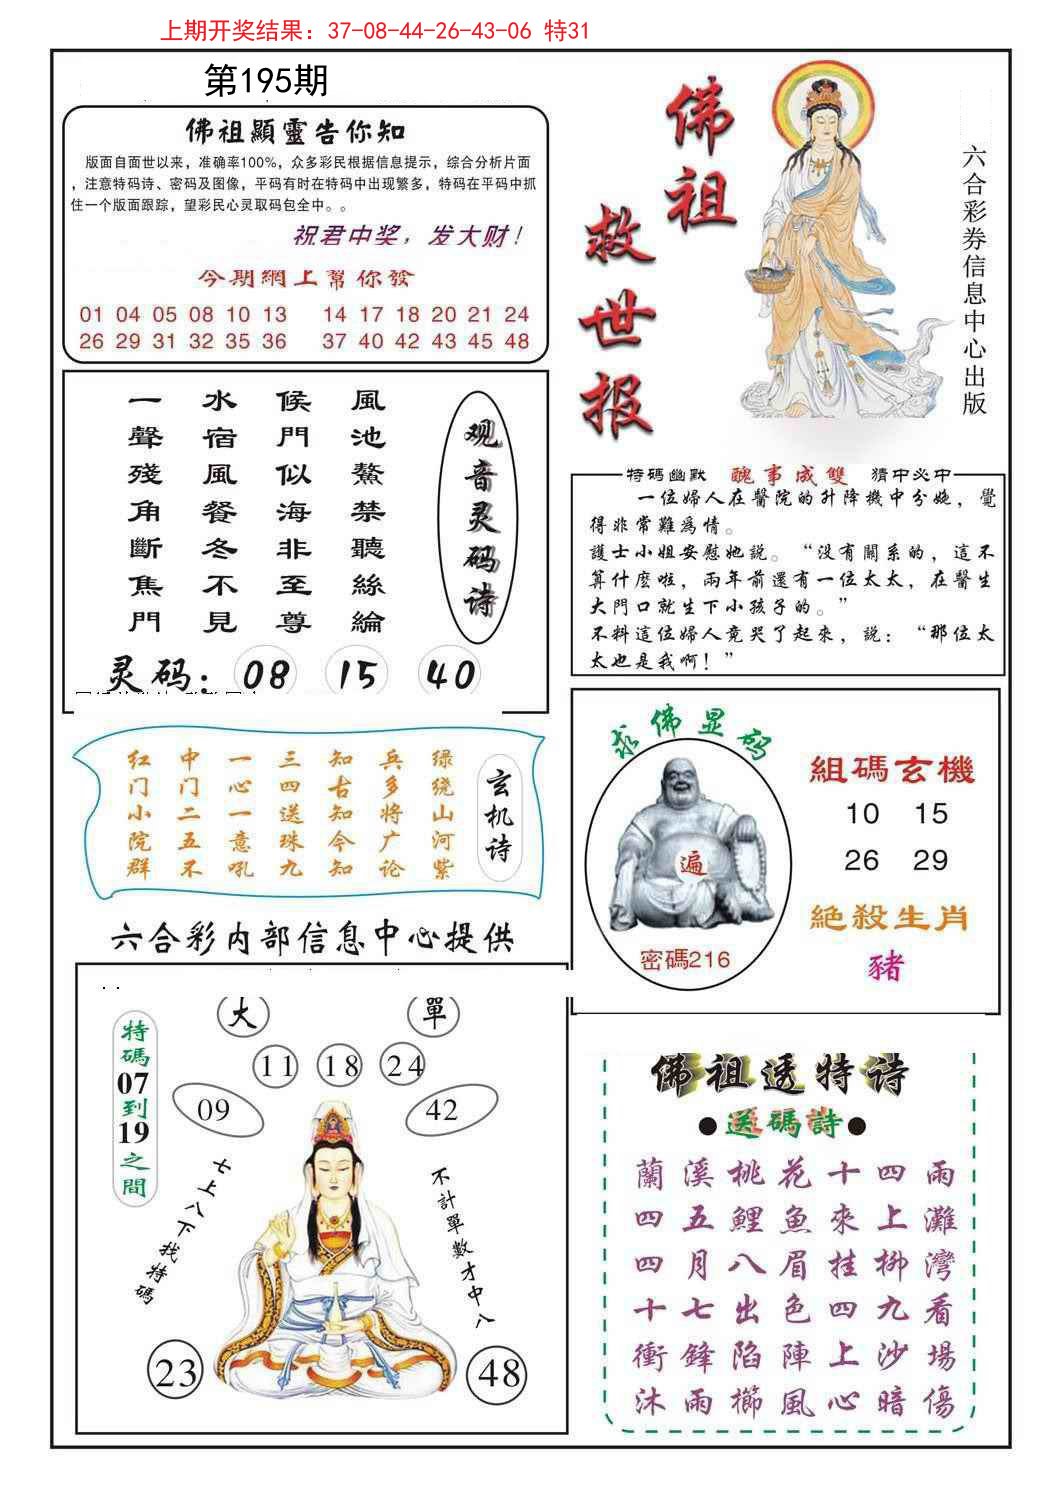 上期开奖结果：37-08-44-26-43-06 特31
第195期
佛祖顯靈告你知
版面自面世以来，准确率100%，众多彩民根据信息提示，综合分析片面
，注意特码诗、密码及图像，平码有时在特码中出现繁多，特码在平码中抓
住一个版面跟踪，望彩民心灵取码包全中。。
祝君中奖，发大财！
今期網上幫你發
01 04 05 08 10 13 14 17 18 20 21 24
26 29 31 32 35 36 37 40 42 43 45 48
佛祖
救世报
六合彩券信息中心出版
風池鰲禁聽絲綸
候門似海非至尊
水宿風餐冬不見
一聲殘角斷焦門
观音灵码诗
灵码：08 15 40
特碼幽默 醜事成雙 猜中必中
一位婦人在醫院的升降機中分娩，覺
得非常難爲情。
護士小姐安慰她説。“没有關系的，這不
算什麽啦，兩年前還有一位太太，在醫生
大門口就生下小孩子的。”
不料這位婦人竟哭了起來，説：“那位太
太也是我啊！”
玄机诗
绿绕山河紫
兵多将广论
知古知今知
三四送珠九
一心一意吼
中门二五不
红门小院群
求佛显码
遍
密碼216
組碼玄機
10 15
26 29
絕殺生肖
豬
六合彩内部信息中心提供
大 單
11 18 24
09 42
特碼07到19之間
七上八下找特碼
不計單數才中八
23 48
佛祖透特诗
●送碼詩●
蘭溪桃花十四雨
四五鯉魚來上灘
四月八眉挂柳灣
十七出色四九看
衝鋒陷陣上沙場
沐雨櫛風心暗傷